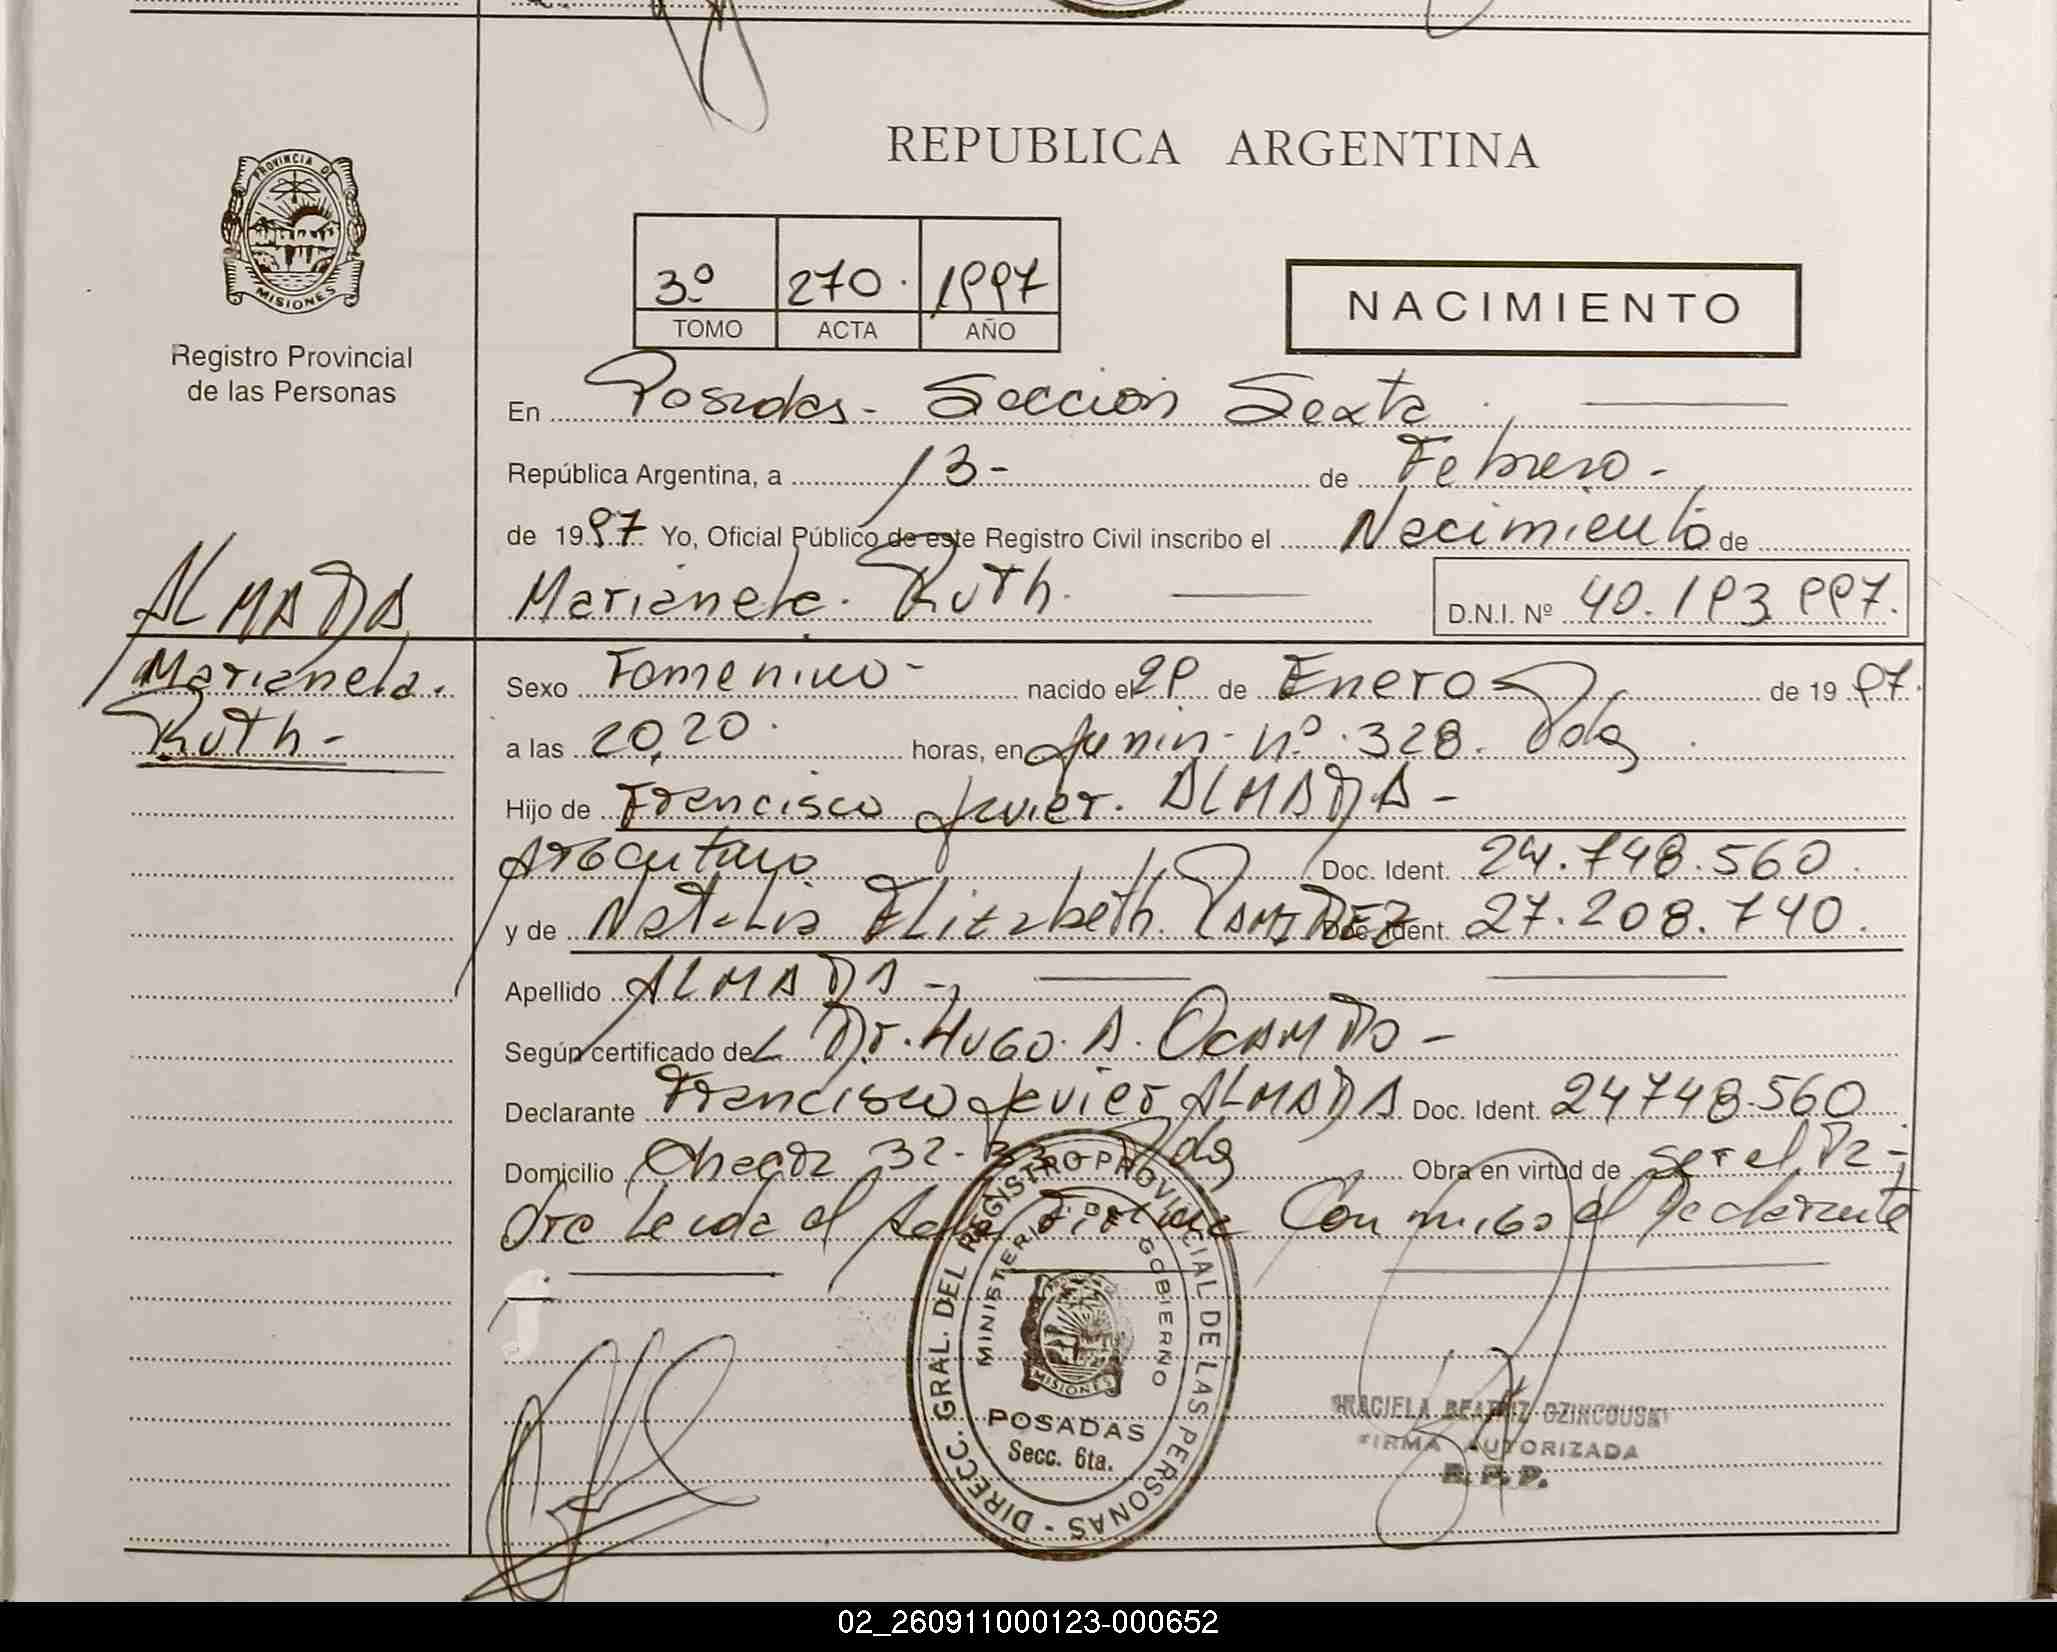 REPUBLICA ARGENTINA
PROVINCIA DE
MISIONES
Registro Provincial
de las Personas
3º 270. 1997
TOMO ACTA AÑO
NACIMIENTO
En Posadas - Seccion Sexta
República Argentina, a 13 - de Febrero -
de 1997 Yo, Oficial Público de este Registro Civil inscribo el Nacimiento de
Marianela. Ruth. D.N.I. Nº 40.193.997.
ALMADA
Marianela.
Ruth -
Sexo Femenino - nacido el 29 de Enero de 1997.
a las 20,20. horas, en Junin - nº. 328. Pdas
Hijo de Francisco Javier. ALMADA -
Doc. Ident. 24.748.560.
y de Natalia Elizabeth. RAMIREZ Doc. Ident. 27.208.740.
Apellido ALMADA -
Según certificado del Dr. HUGO. A. OCAMPO -
Declarante Francisco Javier ALMADA Doc. Ident. 24748.560
Domicilio 32-33 Pdas Obra en virtud de ser el Pa-
dre Leida el Acta Firma Conmigo el declarante
DIRECC. GRAL. DEL REGISTRO PROVINCIAL DE LAS PERSONAS -
MINISTERIO DE GOBIERNO
MISIONES
POSADAS
Secc. 6ta.
GRACIELA BEATRIZ OZINCOUSKI
FIRMA AUTORIZADA
R. P. P.
02_260911000123-000652